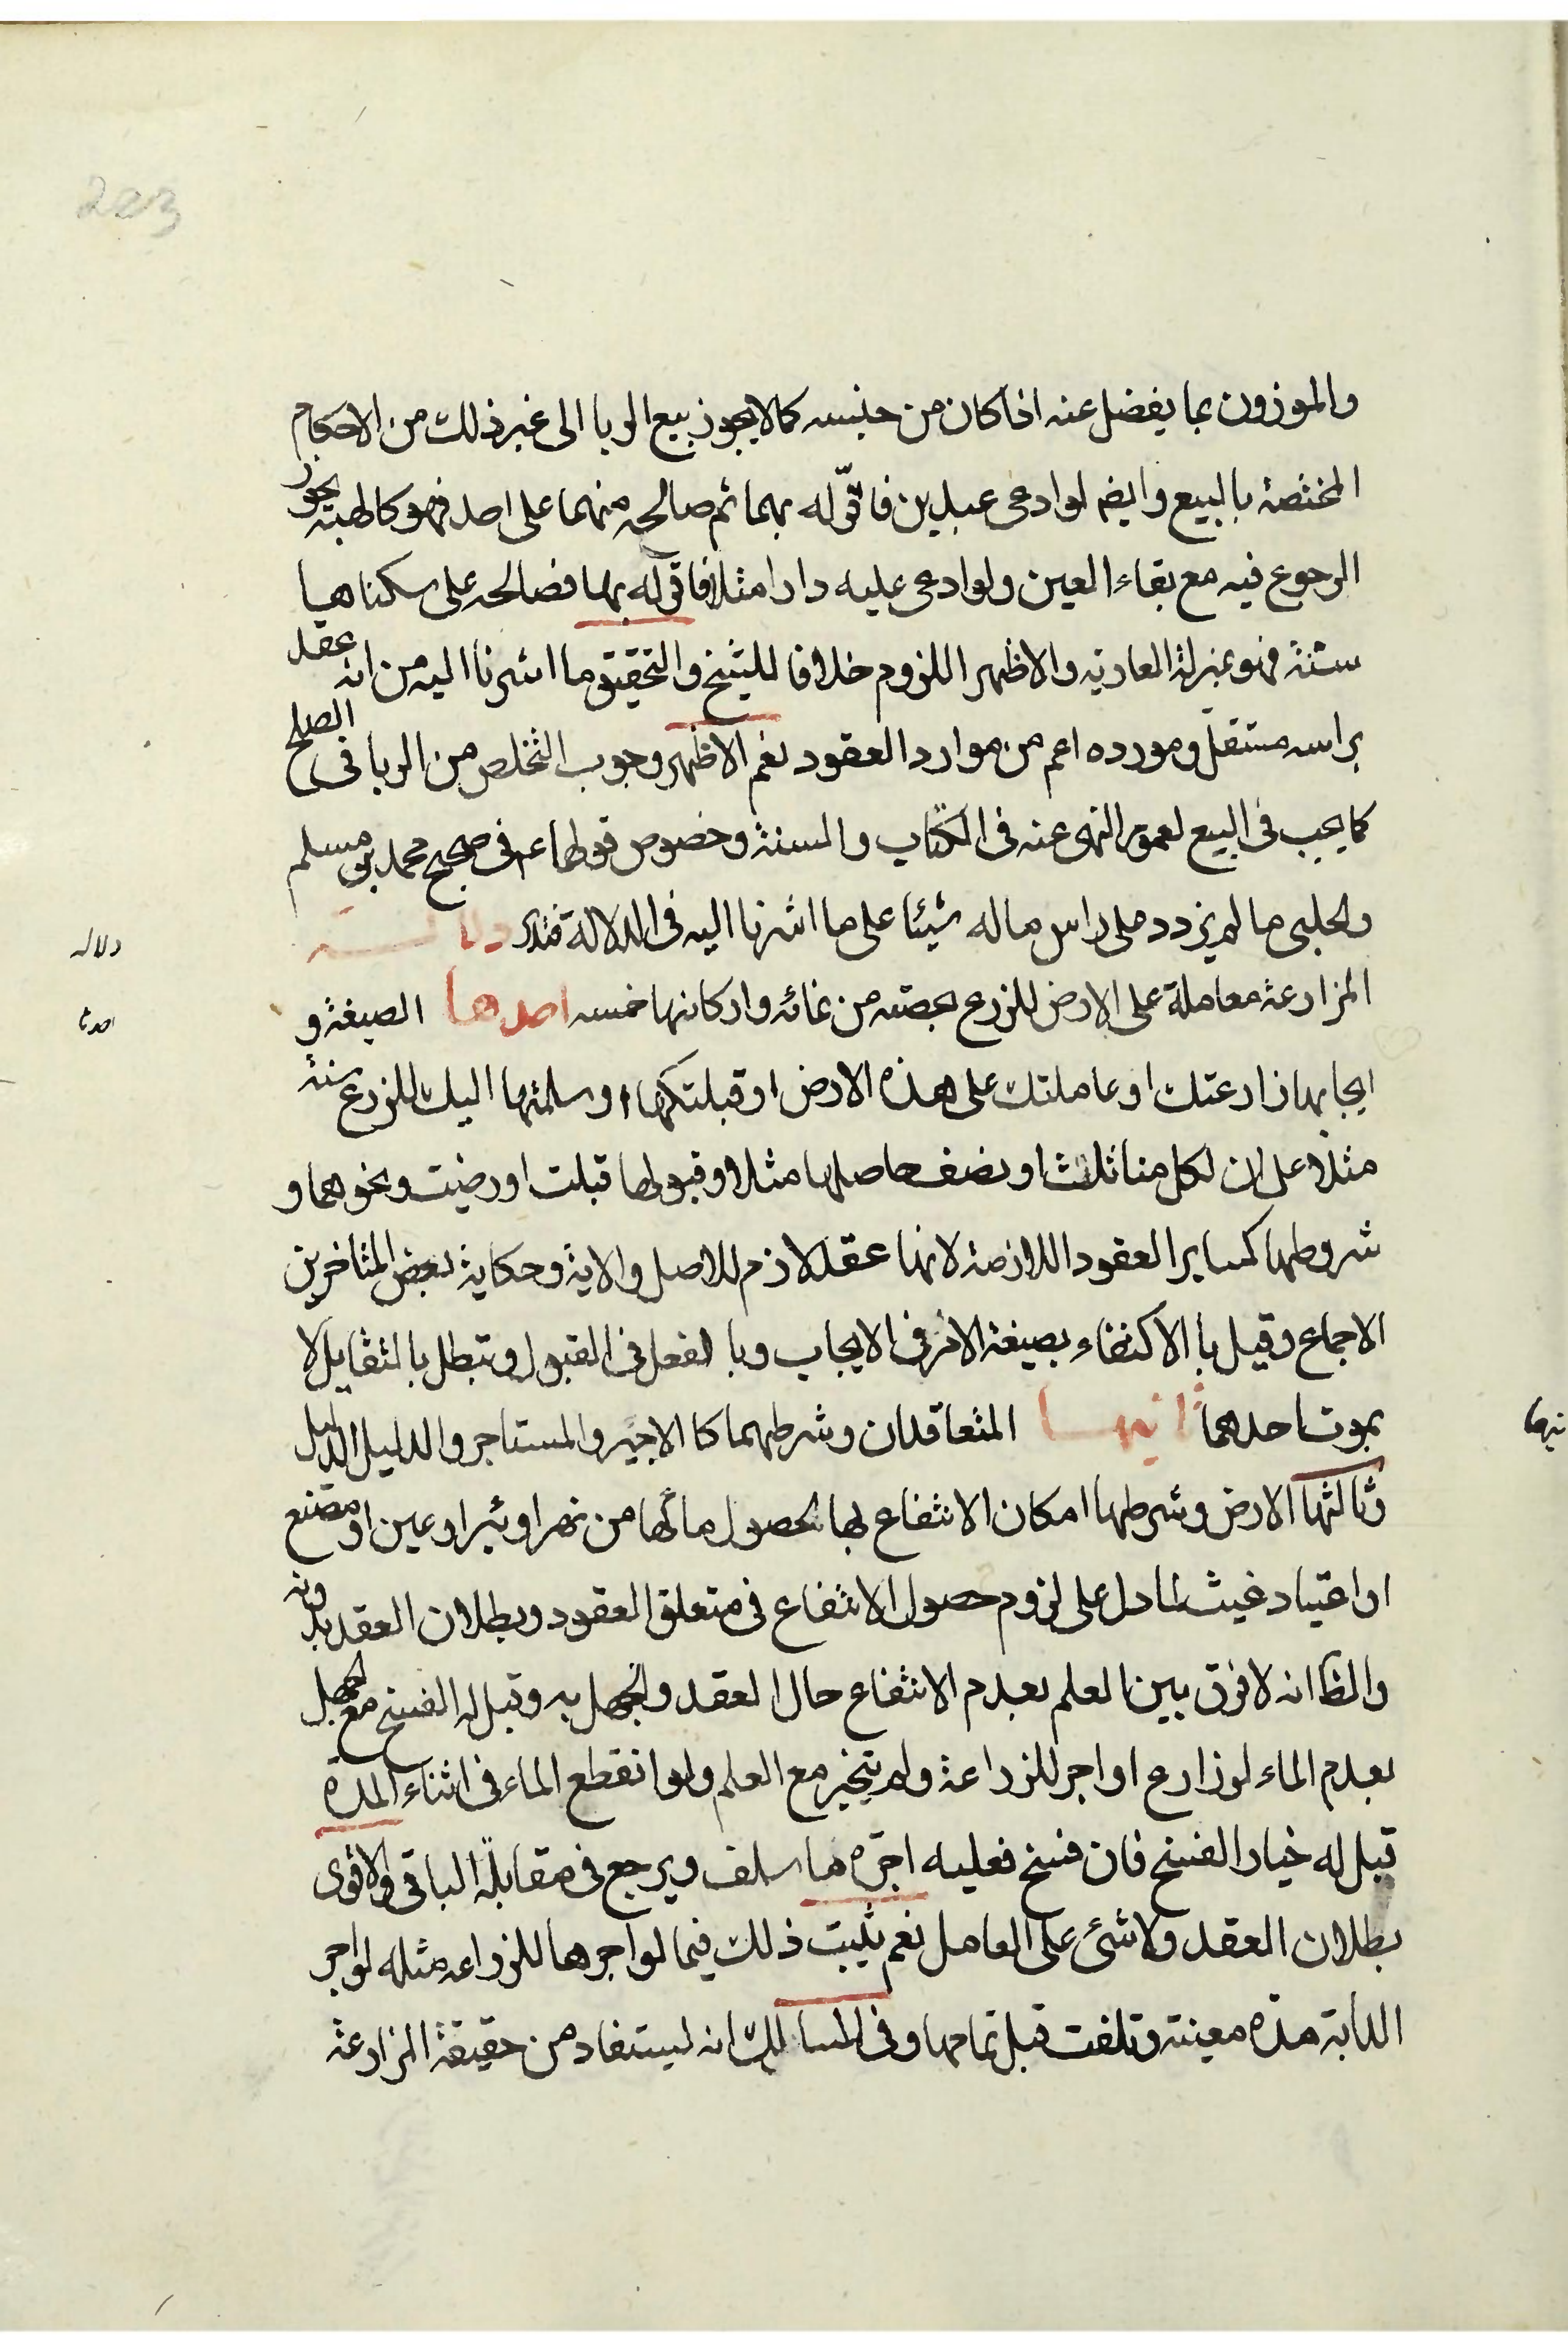 203
والموزون بما يفضل عنه اذا كان من جنسه كما لا يجوز بيع الربا الى غير ذلك من الاحكام
المختصة بالبيع وايضم لو ادعى عبدين فاقرّ له بهما ثم صالحه منهما على احد فهو كالهبة يجوز
الرجوع فيه مع بقاء العين ولو ادعى عليه دارا مثلا فاقرّ له بها فصالحه على سكناها
سنة فهو بمنزلة العارية والاظهر اللزوم خلافا للشيخ والتحقيق ما اشرنا اليه من انه عقد
براسه مستقل ومورده اعم من موارد العقود نعم الاظهر وجوب التخلص من الربا فى الصلح
كما يجب فى البيع لعموم النهى عنه فى الكتاب والسنة وخصوص قولهما عم فى صحيح محمد بن مسلم
والحلبى ما لم يزدد على راس ماله شيئا على ما اشرنا اليه فى الدلالة فتدبر دلالة
دلاله
المزارعة معاملة على الارض للزرع بحصة من نمائه واركانها خمسه احدها الصيغة و
احدها
ايجابها زارعتك او عاملتك على هذه الارض او قبلتكها او سلمتها اليك للزرع سنة
مثلا على ان لكل منا ثلث او نصف حاصلها مثلا وقبولها قبلت او رضيت ونحوهما و
شروطها كساير العقود اللازمة لانها عقد لازم للاصل والاية وحكاية بعض المتاخرين
الاجماع وقيل با الاكتفاء بصيغة الامر فى الايجاب وبا الفعل فى القبول وتبطل بالتقايل لا
بموت احدهما ثانيها المتعاقدان وشرطهما كا الاجير والمستاجر والدليل الدليل
نيها
وثالثها الارض وشرطها امكان الانتفاع بها لحصول مائها من نهر او بئر او عين او مصنع
او اعتياد غيث لما دل على لزوم حصول الانتفاع فى متعلق العقود وبطلان العقد بدونه
والظا انه لا فرق بين العلم بعدم الانتفاع حال العقد والجهل به وقيل له الفسخ مع الجهل
بعدم الماء لو زارع او اجر للزراعة ولم يتخير مع العلم ولو انقطع الماء فى اثناء المدة
قيل له خيار الفسخ فان فسخ فعليه اجرة ما سلف ويرجع فى مقابلة الباقى والاقوى
بطلان العقد ولا شئ على العامل نعم يثبت ذلك فيما لو اجرها للزراعه مثله لو اجر
الدابة مدة معينة وتلفت قبل تمامها وفى المسالك انه ليستفاد من حقيقة المزارعة